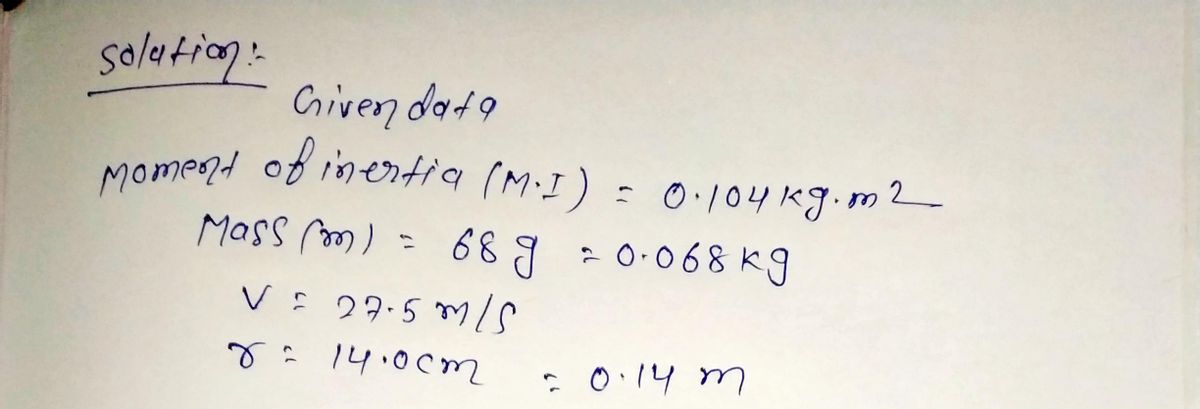 Solution:-
Given data
Moment of inertia (M.I) = 0.104 kg.m2
Mass (m) = 68 g = 0.068 kg
V = 27.5 m/s
r = 14.0cm = 0.14 m